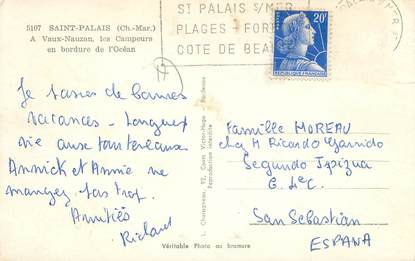 5107 SAINT-PALAIS (Ch.-Mar.)
A Vaux-Nauzan, les Campeurs
en bordure de l'Océan
ST PALAIS S/MER
PLAGES - FOR
COTE DE BEA
20F
REPUBLIQUE FRANÇAISE
Je passe de bonnes
vacances - Longue
vie aux tourtereaux
Annick et Annie ne
mangez pas trop.
Amitiés
Richard
L. Chatagneau, 97, Cours Victor-Hugo - Bordeaux
Reproduction interdite
Famille MOREAU
chez M Ricardo Garrido
Segundo Izpizua
San Sebastian
ESPANA
Véritable Photo au bromure